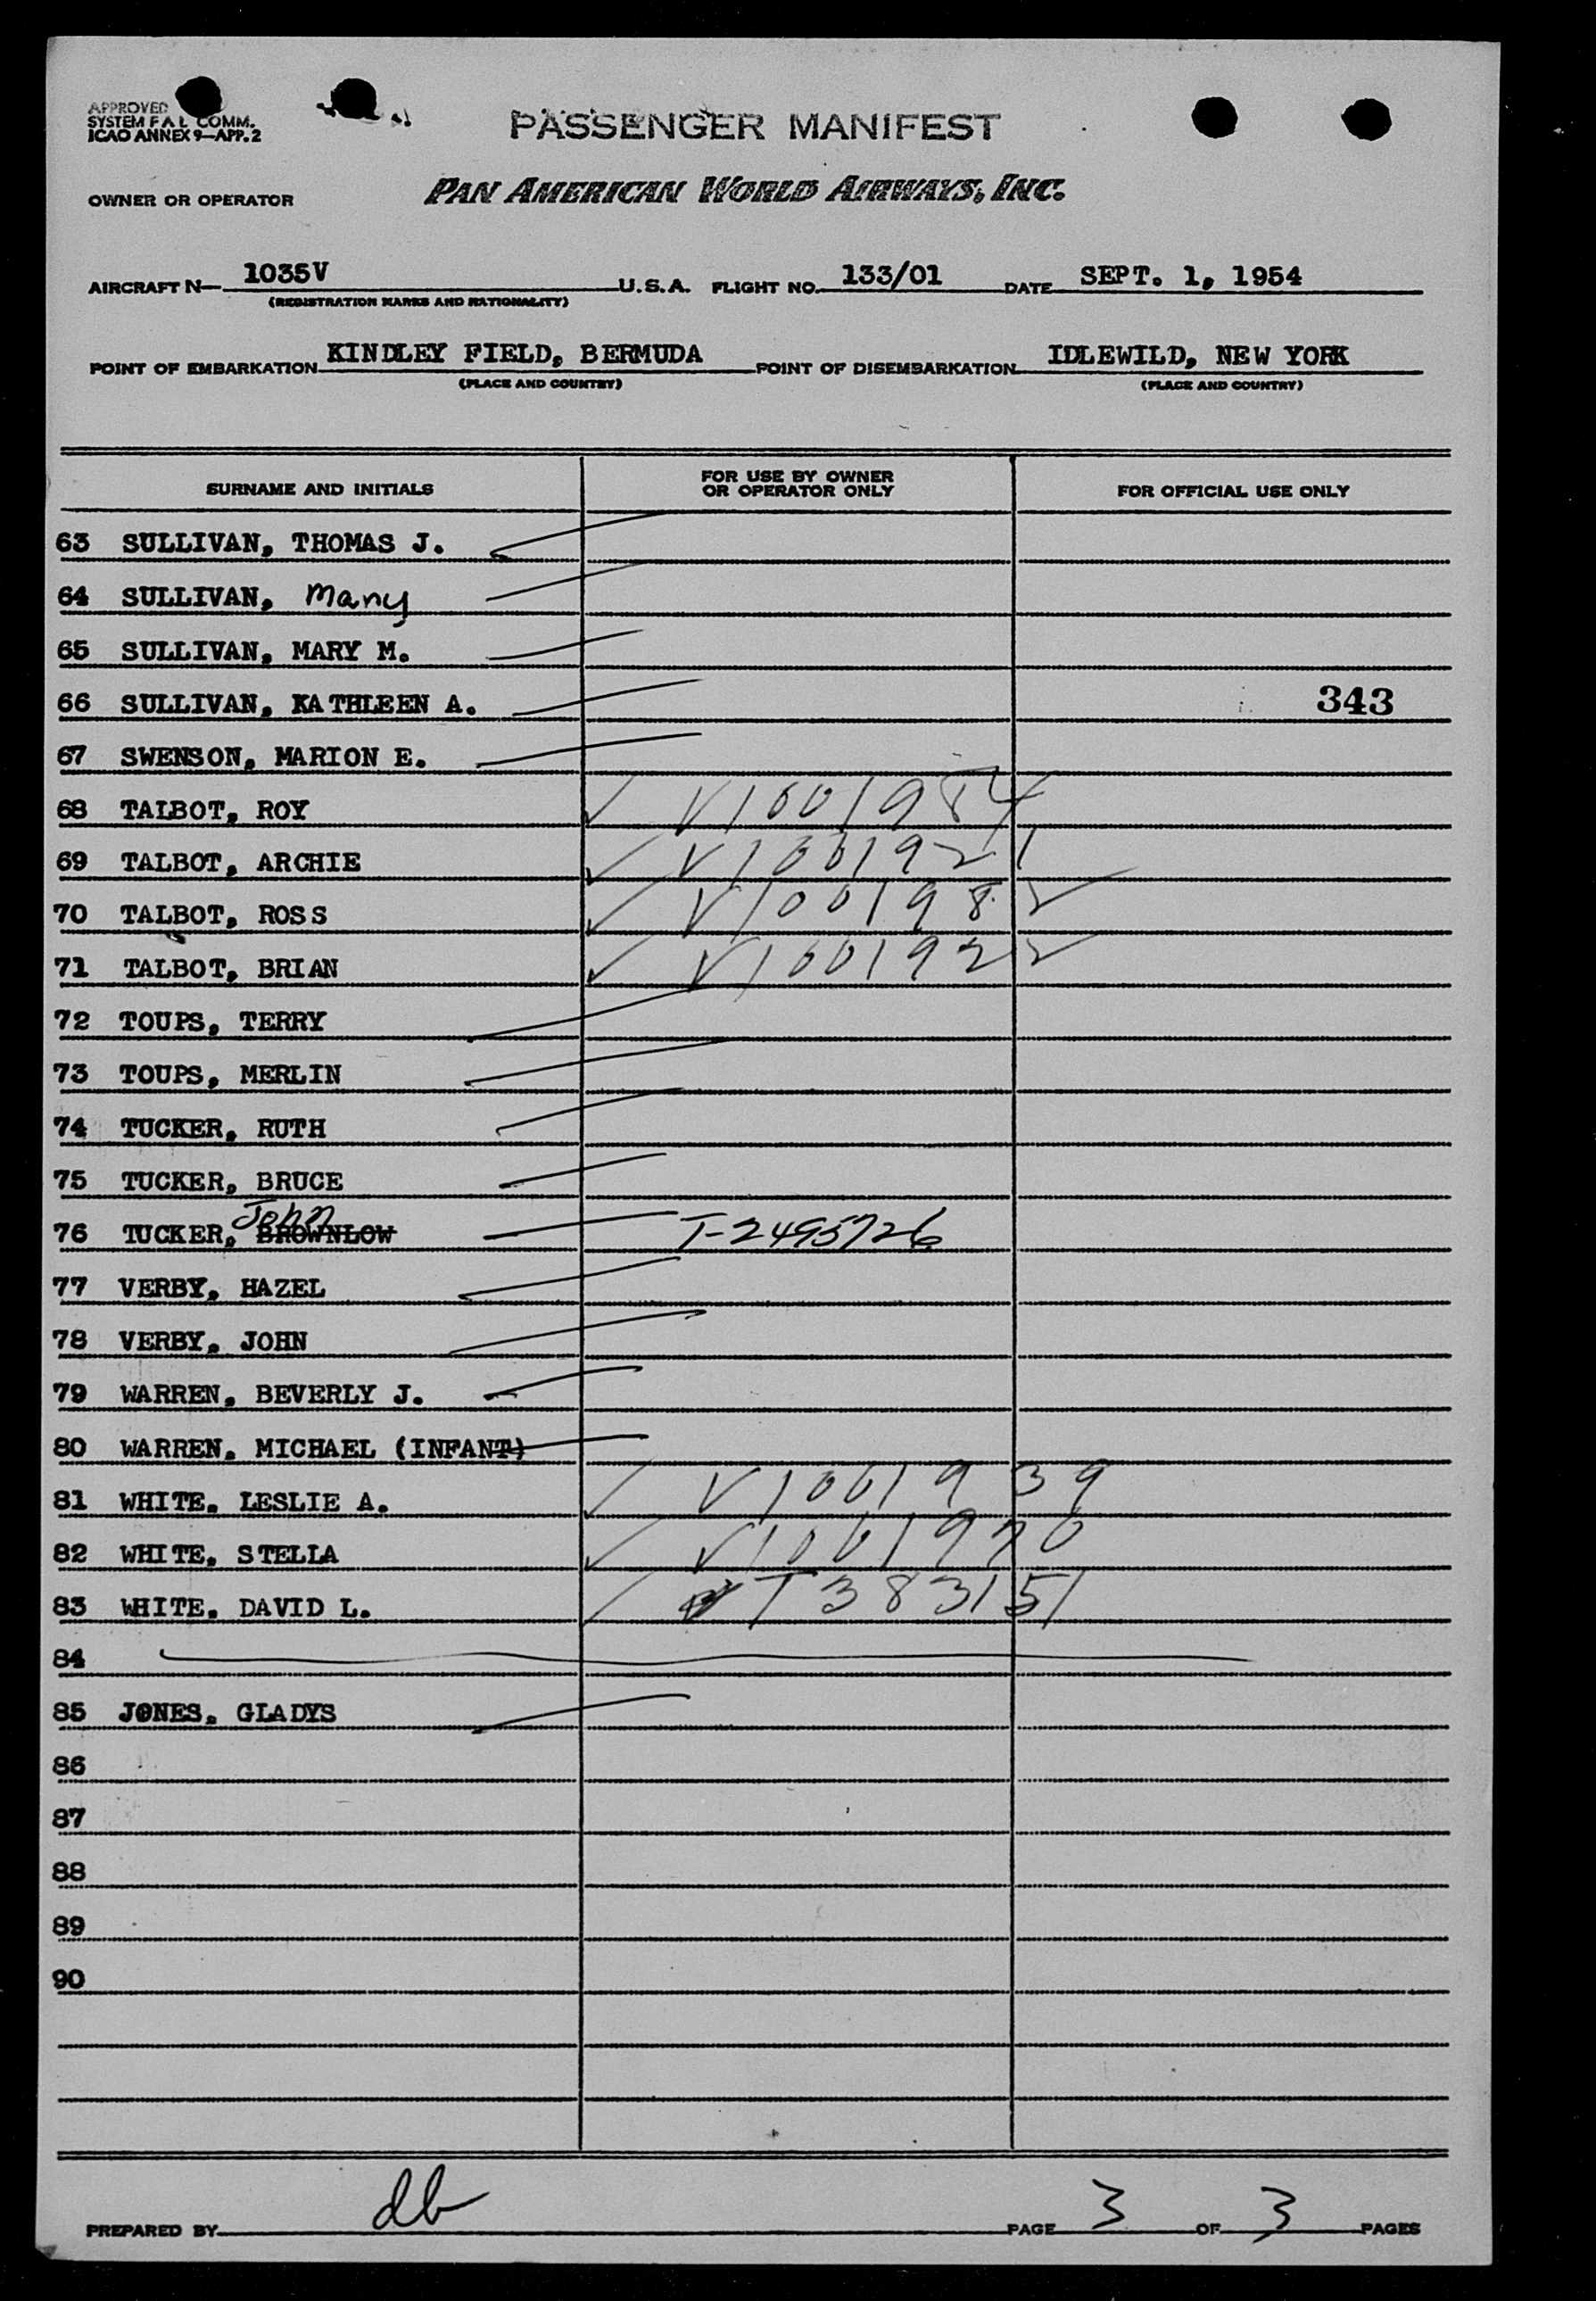 APPROVED
SYSTEM F A L COMM.
ICAO ANNEX 9—APP. 2
PASSENGER MANIFEST
OWNER OR OPERATOR PAN AMERICAN WORLD AIRWAYS, INC.
AIRCRAFT N— 1035V U.S.A. FLIGHT NO. 133/01 DATE SEPT. 1, 1954
(REGISTRATION MARKS AND NATIONALITY)
POINT OF EMBARKATION KINDLEY FIELD, BERMUDA POINT OF DISEMBARKATION IDLEWILD, NEW YORK
(PLACE AND COUNTRY) (PLACE AND COUNTRY)
SURNAME AND INITIALS FOR USE BY OWNER OR OPERATOR ONLY FOR OFFICIAL USE ONLY
63 SULLIVAN, THOMAS J.
64 SULLIVAN, Mary
65 SULLIVAN, MARY M.
66 SULLIVAN, KATHLEEN A. 343
67 SWENSON, MARION E.
68 TALBOT, ROY ✓ V1001984
69 TALBOT, ARCHIE ✓ V1001921
70 TALBOT, ROSS ✓ V1001982
71 TALBOT, BRIAN ✓ V1001922
72 TOUPS, TERRY
73 TOUPS, MERLIN
74 TUCKER, RUTH
75 TUCKER, BRUCE
76 TUCKER, John BROWNLOW T-2495726
77 VERBY, HAZEL
78 VERBY, JOHN
79 WARREN, BEVERLY J.
80 WARREN, MICHAEL (INFANT)
81 WHITE, LESLIE A. ✓ V1001939
82 WHITE, STELLA ✓ V1001970
83 WHITE, DAVID L. ✓ T383151
84
85 JONES, GLADYS
86
87
88
89
90
PREPARED BY db PAGE 3 OF 3 PAGES